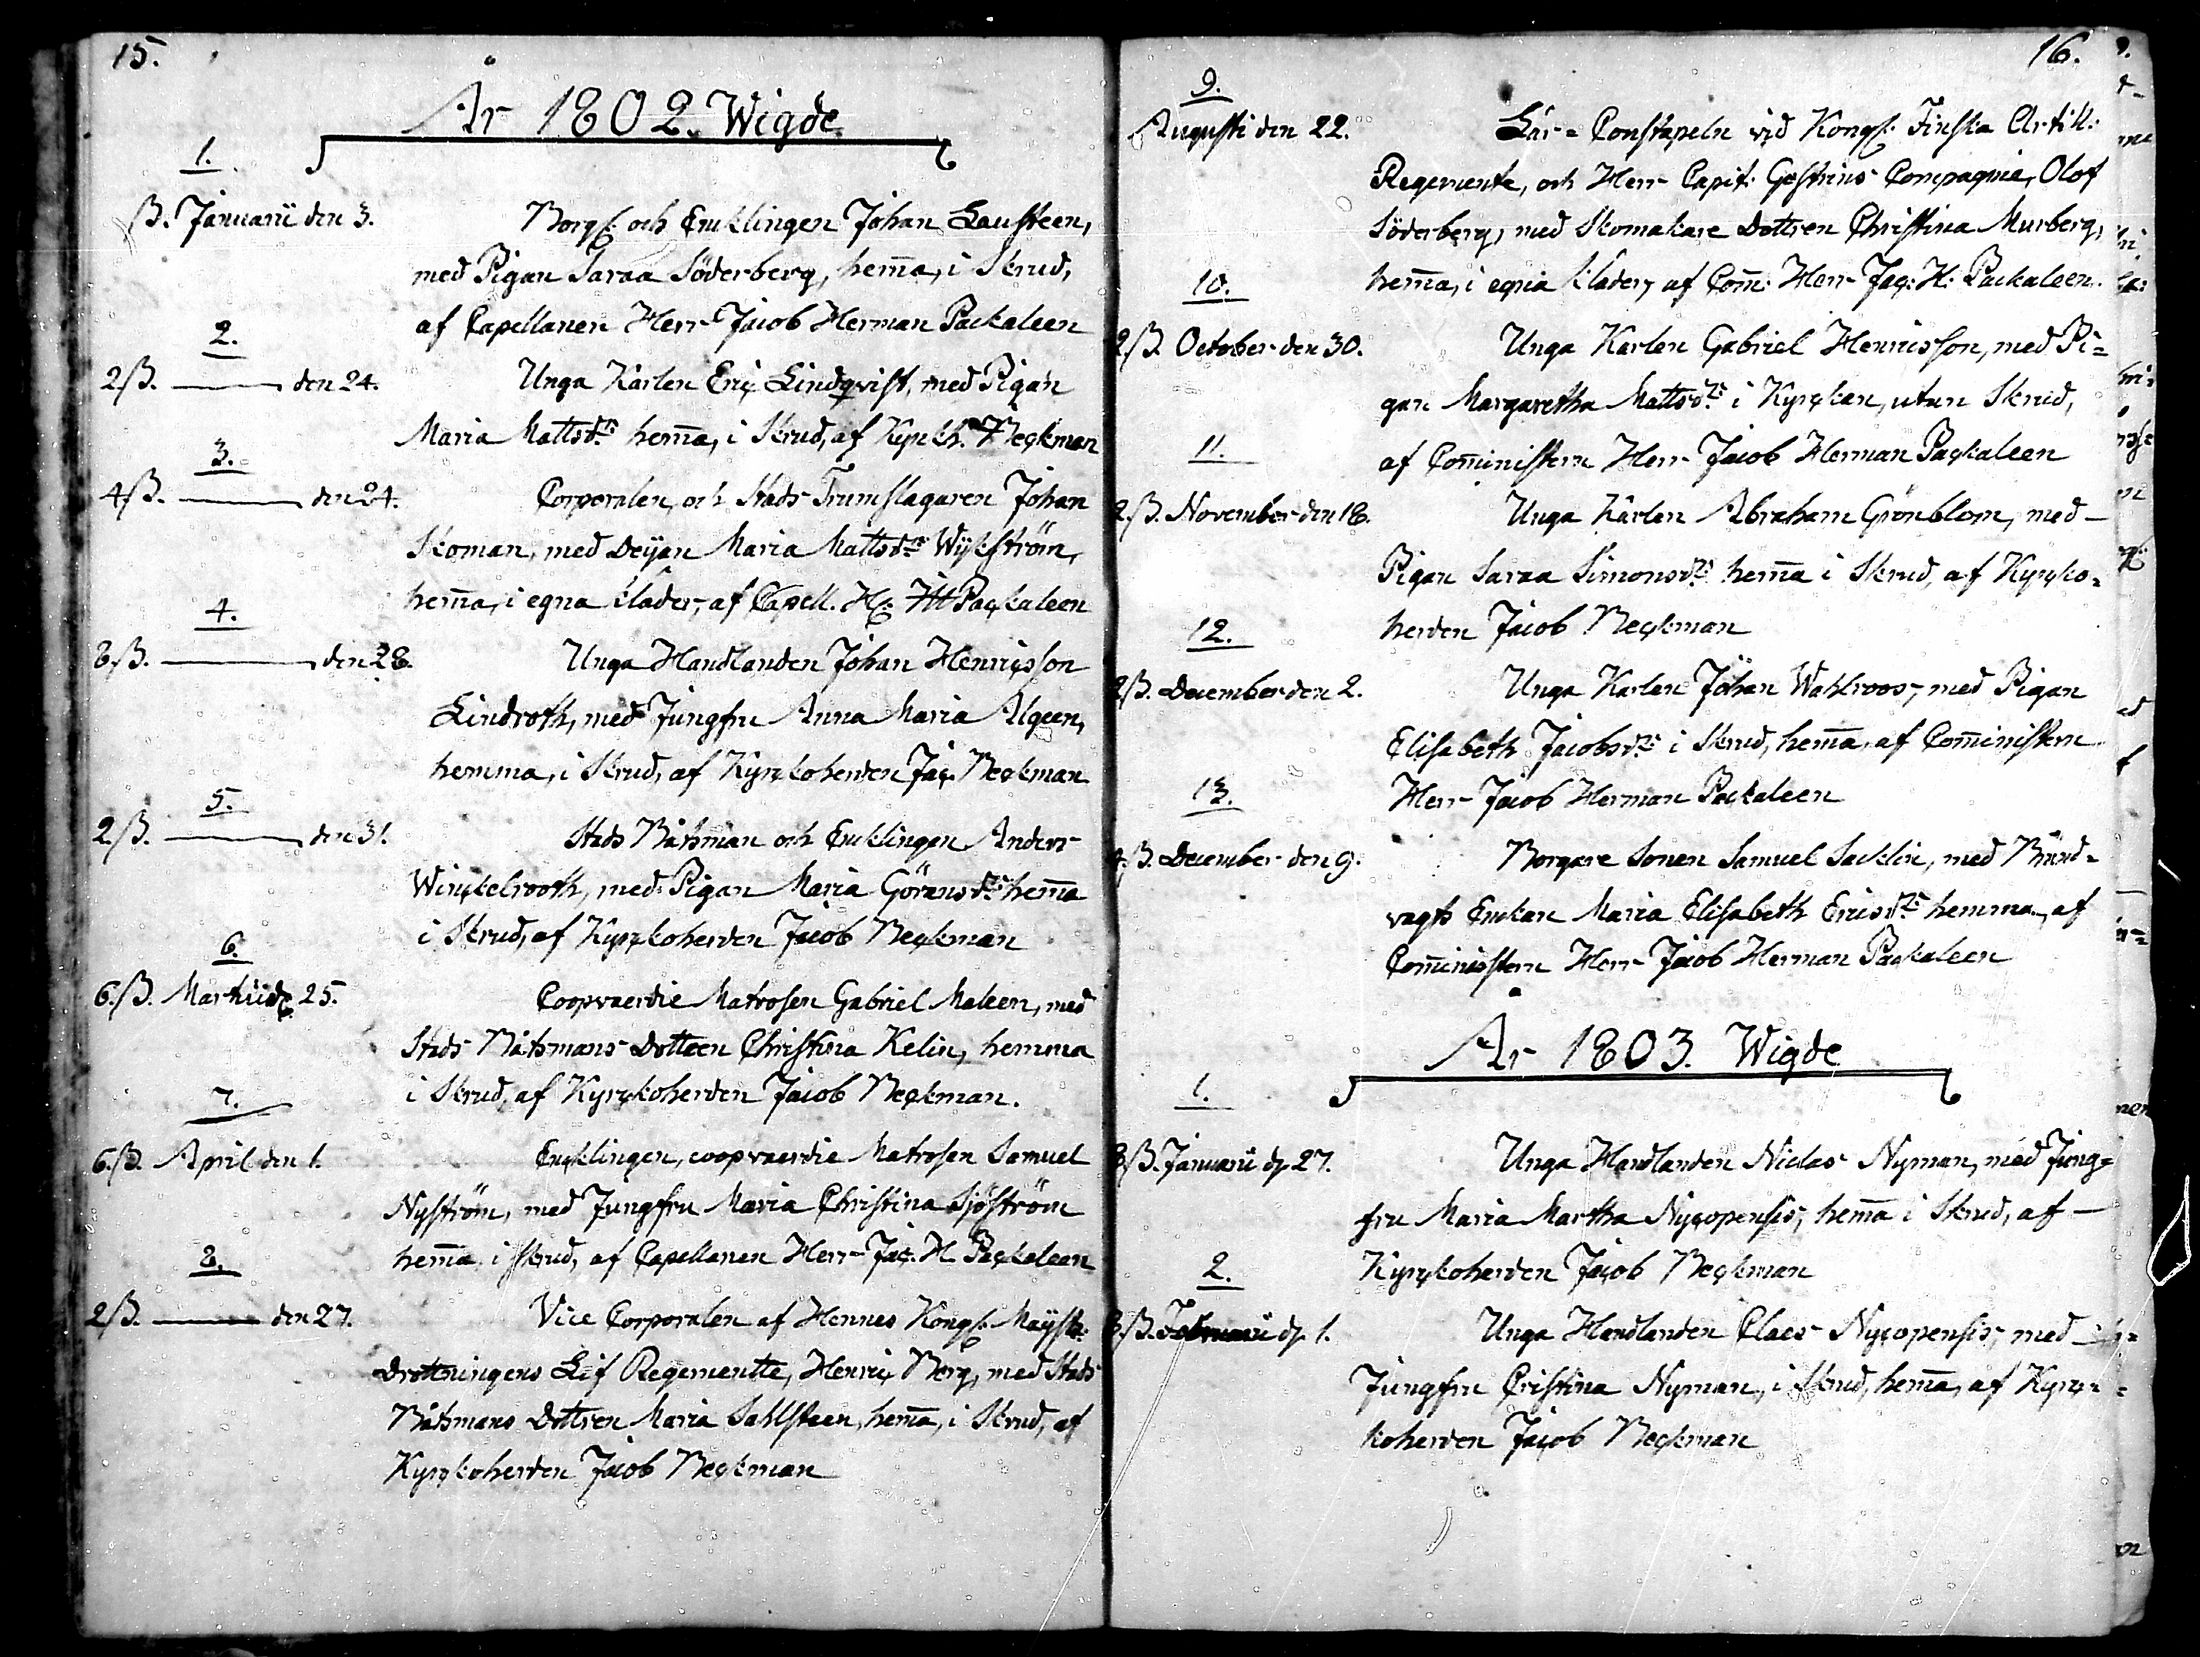 15.
År 1802. Wigde
1.
ß. Januarii den 3. Borg: och Encklingen Johan Lausteen,
med Pigan Saraa Söderberg, hem̄a, i Skrud,
af Capellanen Herr Jacob Herman Packaleen
2.
2 ß. — den 24. Unga Karlen Eric Lindqvist, med Pigan
Maria Mattsd:r hem̄a, i Skrud, af Kyrckh: Beckman
3.
4 ß. — den 24. Corporalen, och Stads Trumslagaren Johan
Skoman, med Deijan Maria Mattsd:r Wijkström,
hem̄a, i egna kläder, af Capell. H: JH Packaleen
4.
8 ß. — den 28. Unga Handlanden Johan Henricsson
Lindroth, med Jungfru Anna Maria Algeen,
hemma, i Skrud, af Kyrckoherden Jac. Beckman
5.
2. ß. — den 31. Stads Båtsman och Encklingen Anders
Winckelrooth, med Pigan Maria Göransd:r hem̄a
i Skrud, af Kyrckoherden Jacob Beckman
6.
6. ß. Martii d. 25. Coopvaerdie Matrosen Gabriel Maleen, med
Stads Båtsmans Dottren Christina Kelin, hemma
i Skrud, af Kyrckoherden Jacob Beckman.
7.
6. ß. April den 1. Encklingen, coopvaerdie Matrosen Samuel
Nyström, med Jungfru Maria Christina Sjöström
hem̄a i Skrud, af Capellanen Herr Jac. H. Packaleen
8.
2 ß. — den 27. Vice Corporalen af Hennes Kongl: Mayst:
Drottningens Lif Regementte, Henric Berg, med Stads
Båtsmans Dottren Maria Sahlsteen, hem̄a, i Skrud, af
Kyrckoherden Jacob Beckman
16.
9.
Augusti den 22. Lär-Constapeln vid Kongl: Finska Artill:
Regemente, och Herr Capit: Gestrins Compagnie, Olof
Söderberg, med Skomakare Dottren Christina Murberg,
hem̄a, i egna kläder, af Com̄: Herr Jac: H: Packaleen.
10.
2 ß. October den 30. Unga Karlen Gabriel Henricsson, med Pi-
gan Margaretha Mattsd:r i Kyrckan, utan Skrud,
af Com̄inistern Herr Jacob Herman Packaleen
11.
2 ß. November den 18. Unga Karlen Abraham Grönblom, med
Pigan Saraa Simonsd:r hem̄a i Skrud, af Kyrcko-
herden Jacob Beckman
12.
2 ß. December den 2. Unga Karlen Johan Wahlroos, med Pigan
Elisabeth Jacobsd:r i Skrud, hem̄a, af Com̄inistern
Herr Jacob Herman Packaleen
13.
4 ß. December den 9. Borgare Sonen Samuel Sacklin, med Brand-
vagts Enckan Maria Elisabeth Ericsd:r hemma, af
Com̄inistern Herr Jacob Herman Packaleen
År 1803. Wigde
1.
8 ß. Januarii d. 27. Unga Handlanden Niclas Nyman, med Jung-
fru Maria Martha Nycopensis, hem̄a i Skrud, af
Kyrckoherden Jacob Beckman
2.
8 ß. Februarii d. 1. Unga Handlanden Claes Nycopensis, med
Jungfru Cristina Nyman, i Skrud, hem̄a, af Kyrc-
koherden Jacob Beckman